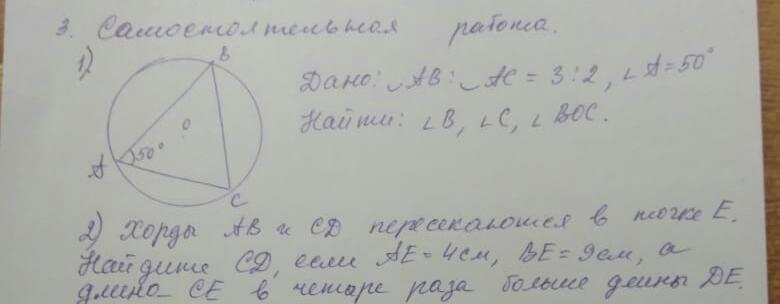 3. Самостоятельная работа.
1)
B
Дано: ◡AB : ◡AC = 3 : 2, ∠A = 50°
Найти: ∠B, ∠C, ∠BOC.
O
50°
A
C
2) Хорды AB и CD пересекаются в точке E.
Найдите CD, если AE = 4см, BE = 9см, а
длина CE в четыре раза больше длины DE.